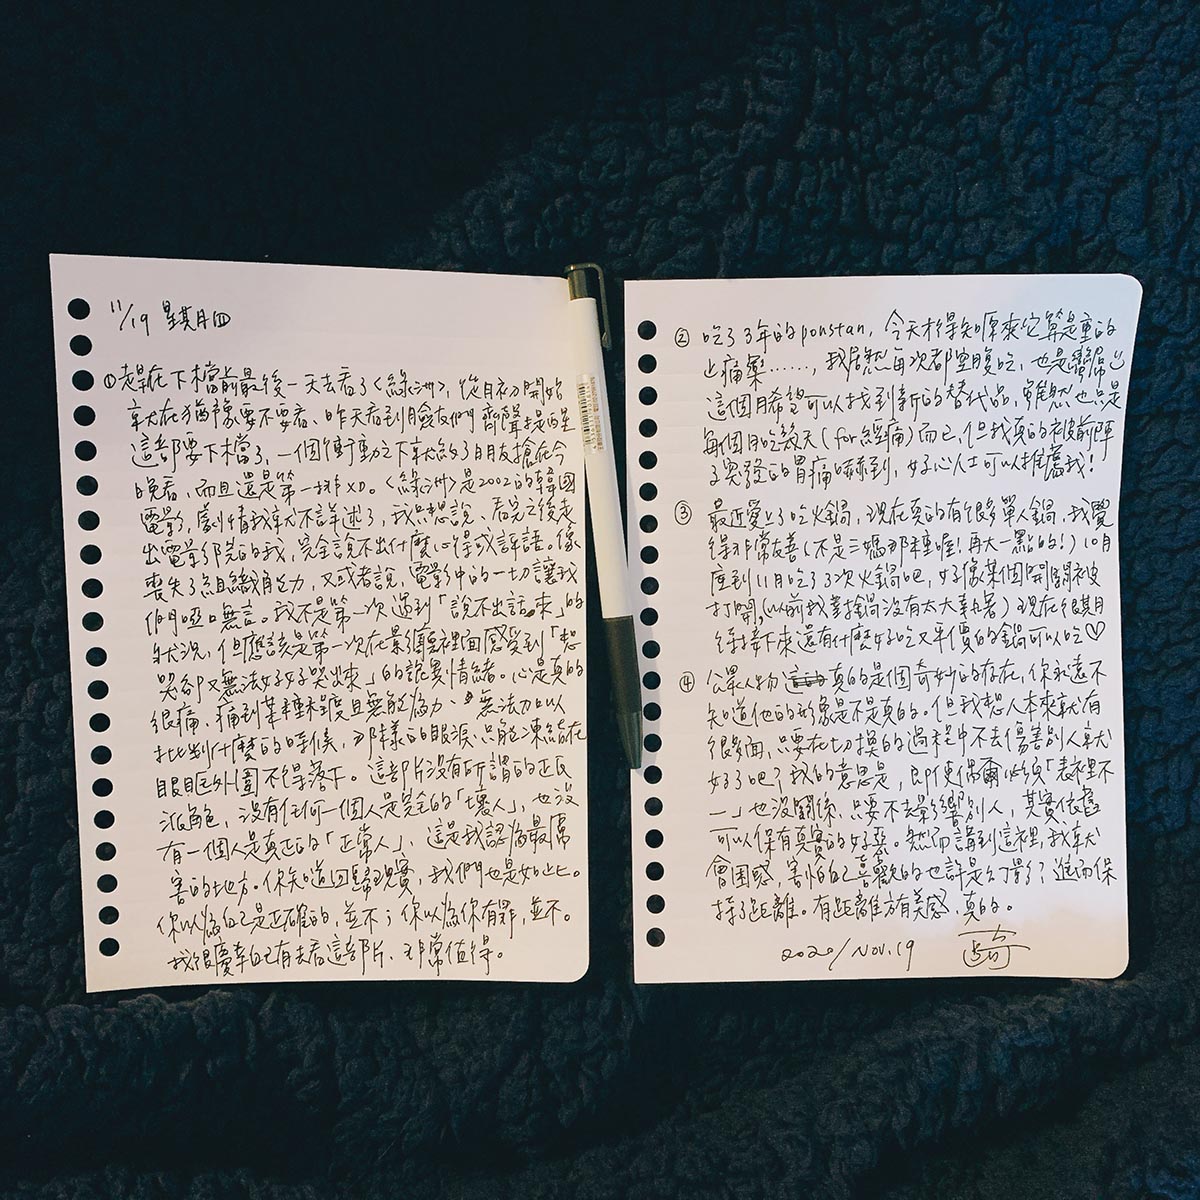 11/19 星期四
①趕在下檔前最後一天去看了〈綠洲〉, 從月初開始
就在猶豫要不要看、昨天看到臉友們齊聲提醒
這部要下檔了, 一個衝動之下就約了朋友搶在今
晚看, 而且還是第一排XD。〈綠洲〉是2002的韓國
電影, 劇情我就不詳述了, 我只想說、看完之後走
出電影院的我, 完全說不出什麼心得或評語。像
喪失了組織能力, 又或者說, 電影中的一切讓我
們啞口無言。我不是第一次遇到「說不出話來」的
狀況, 但應該是第一次在影廳裡面感受到「想
哭卻又無法好好哭出來」的詭異情緒。心是真的
很痛、痛到某種程度且無能為力、無法加以
批判什麼的時候, 那樣的眼淚只能凍結在
眼眶外圍不得落下。這部片沒有所謂的正反
派角色, 沒有任何一個人是完全的「壞人」, 也沒
有一個人是真正的「正常人」, 這是我認為最厲
害的地方。你知道回歸現實, 我們也是如此。
你以為自己是正確的, 並不; 你以為你有罪, 並不。
我很慶幸自己有去看這部片、非常值得。
② 吃了3年的ponstan, 今天才得知原來它算是重的
止痛藥......, 我居然每次都空腹吃, 也是蠻屌
這個月希望可以找到新的替代品, 雖然也只是
每個月吃幾天(for經痛)而已, 但我真的被前陣
子突發的胃痛嚇到, 好心人士可以推薦我!
③ 最近愛上了吃火鍋, 現在真的有很多單人鍋, 我覺
得非常友善(不是三媽那種喔!再大一點的!)10月
底到11月吃了3次火鍋吧, 好像某個開關被
打開,(以前我對鍋沒有太大執著) 現在很期
待接下來還有什麼好吃又平價的鍋可以吃♡
④ 公眾人物真的是個奇妙的存在, 你永遠不
知道他的形象是不是真的。但我想人本來就有
很多面, 只要在切換的過程中不去傷害別人就
好了吧? 我的意思是, 即使偶爾必須「表裡不
一」也沒關係, 只要不去影響別人, 其實依舊
可以保有真實的好惡。然而講到這裡, 我就
會困惑, 害怕自己喜歡的也許是幻影? 進而保
持了距離。有距離方有美感, 真的。
2020/Nov.19